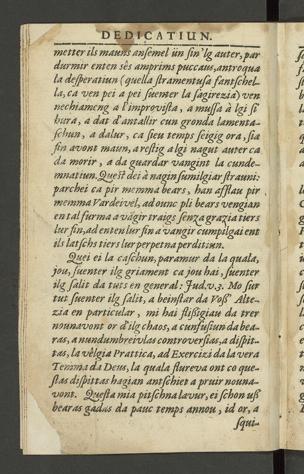 DEDICATIUN.
metter ils mauns ansemel ün sin'lg auter, par
durmir enten sês amprims puccaus, antroqua
la desperatiun (quella stramentusa fantschel-
la, ca ven pei a pei suenter la sagirezia) ven
nechiameng a l'improvista, a mussa à lgi si
hura, a dat d'antallir cun gronda lamenta-
schun, a dalur, ca sieu temps seigig ora, sia
fin avont maun, a restig a lgi nagut auter ca
da morir, a da guardar vangint la cunde-
mnatiun. Quest dei à nagin sumilgiar strauni:
parchei ca pir memma bears, han asflau pir
memma Vardeivel, ad ounc pli bears vengian
en tal furma a vágir traigs senza grazia tiers
lur fin, ad enten lur fin a vangir cumpilgai ent
ils latschs tiers lur perpetna perditiun.
Quei ei la caschun, paramur da la quala,
jou, suenter ilg griament ca jou hai, suenter
ilg salit da tuts en general: Jud. v. 3. Mo sur
tut suenter ilg salit, a beinstar da Voss' Alte-
zia en particular, mi hai slisigiau da trer
nounavont or d'ilg chaos, a cunfusiun da bea-
ras, a nundumbreivlas controversias, a dispit-
tas, la vélgia Prattica, ad Exercizi da la vera
Temma da Deus, la quala stureva ont co que-
stas dispittas hagian antschiet a pruir nouna-
vont. Questa mia pitschna lavur, ei schon uss
bearas gadas da pauc temps annou, id or, a
squi-